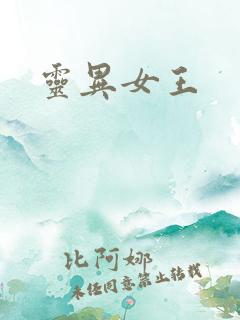 靈異女王
比阿娜
未經同意禁止轉載